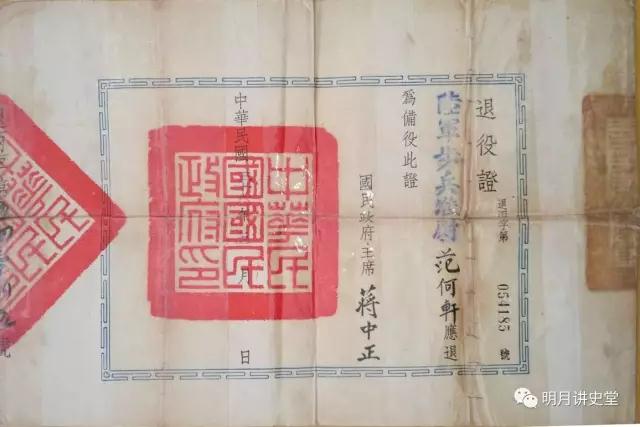 退役證
字第 054185 號
陸軍步兵尉 范何軒應退
為備役此證
國民政府主席 蔣中正
中華民國 年 月 日
中華民
國國民
政府印
明月讲史堂